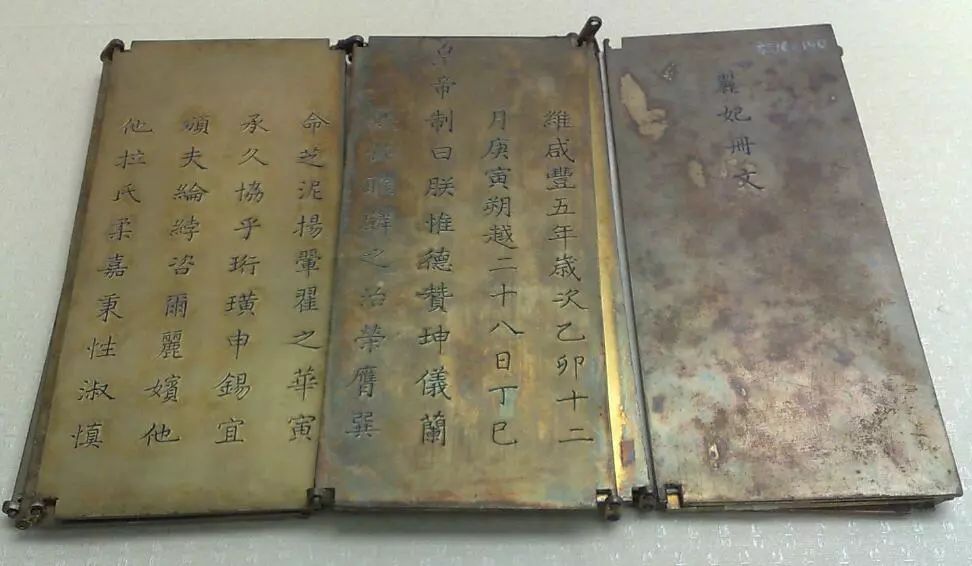 麗妃冊文
維咸豐五年歲次乙卯十二
月庚寅朔越二十八日丁巳
皇帝制曰朕惟德贊坤儀蘭
之治榮膺巽
命芝泥揚翬翟之華寅
承久協乎珩璜申錫宜
頒夫綸綍咨爾麗嬪他
他拉氏柔嘉秉性淑慎